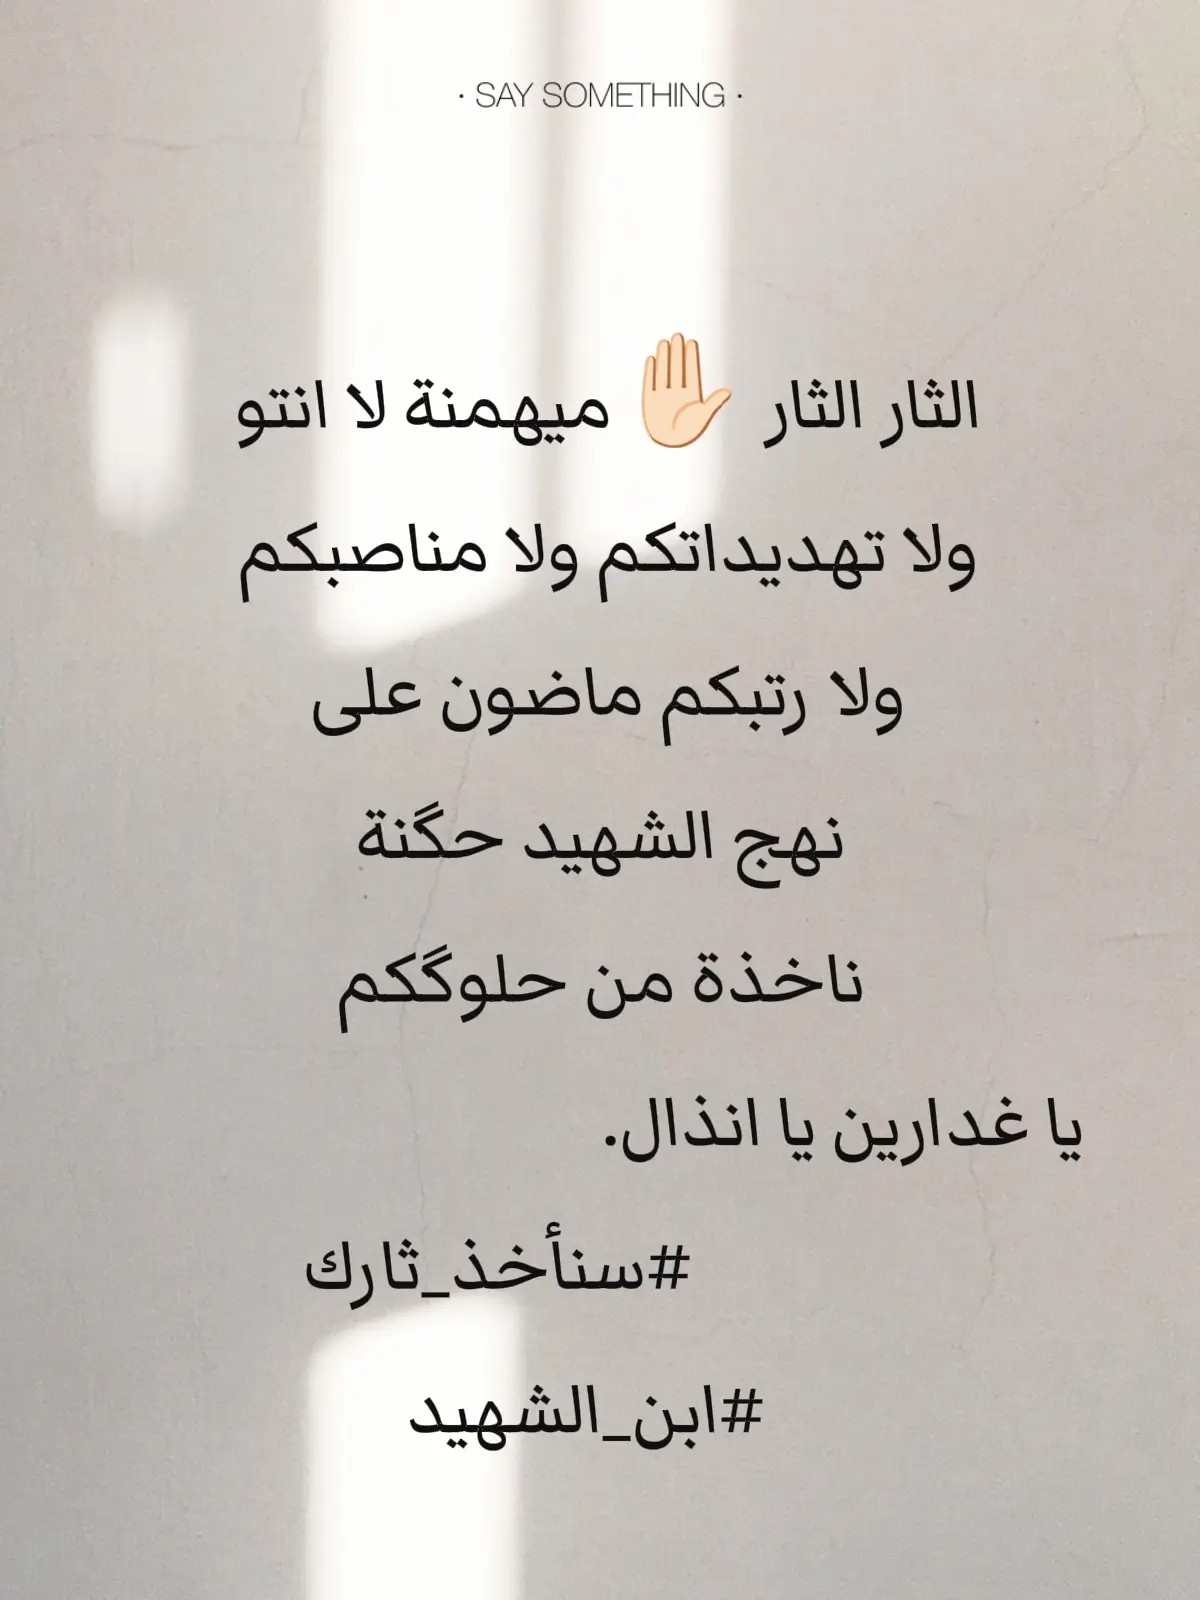 · SAY SOMETHING ·
الثار الثار ✋🏻 ميهمنة لا انتو
ولا تهديداتكم ولا مناصبكم
ولا رتبكم ماضون على
نهج الشهيد حگنة
ناخذة من حلوگكم
يا غدارين يا انذال.
#سنأخذ_ثارك
#ابن_الشهيد